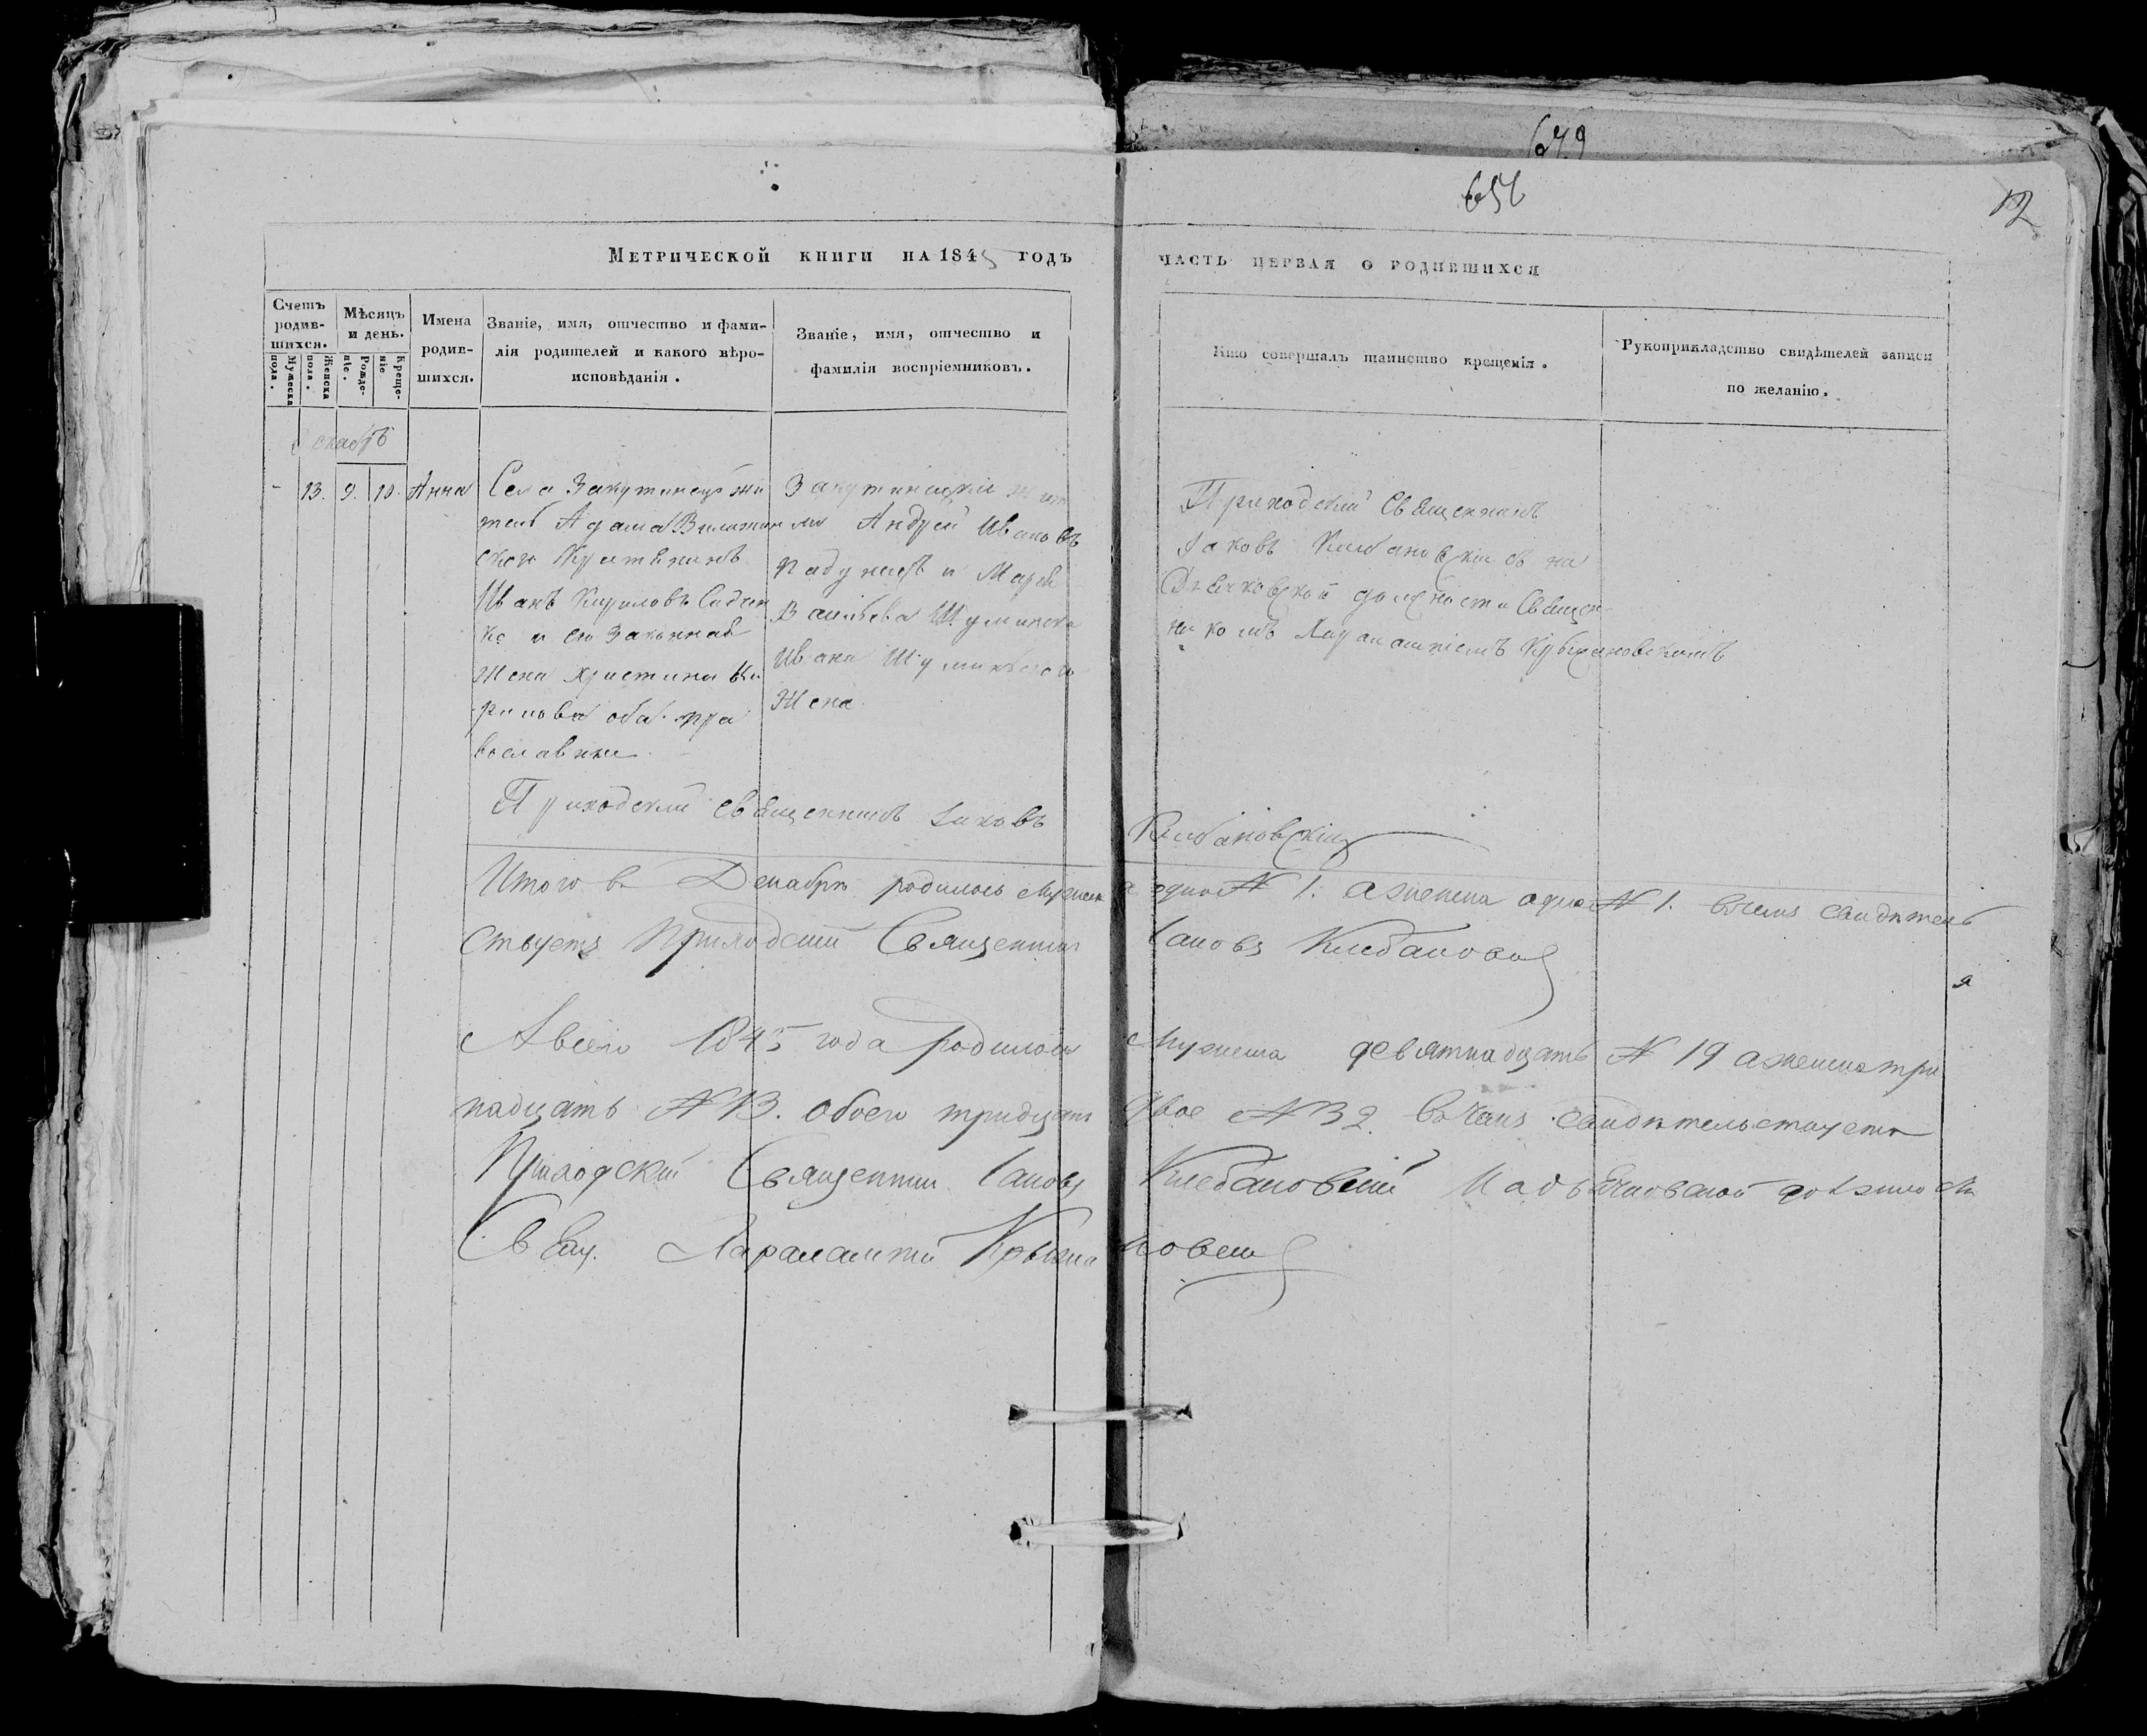 679
656
12
Метрической книги на 1845 годъ
часть первая о родившихся
Счетъ родив-шихся.
Мужеска пола.
Женска пола.
Мѣсяцъ и день.
Рожде-нiе.
Креще-нiе
Имена
родив-
шихся.
Званiе, имя, отчество и фами-
лiя родителей и какого вѣро-
исповѣданiя.
Званiе, имя, отчество и
фамилiя воспрiемниковъ.
Кто совершалъ таинство крещенiя.
Рукоприкладство свидѣтелей записи
по желанiю.
декабрь
- 13. 9. 10. Анна
Села Закутинецъ жи
тель Адама
крестьянинъ
Иванъ Кириловъ
ко и его законная
жена Христина Ки
рилова оба пра
вославные
Закутинецкiи жит
ели Андрей Ивановъ
и Марiя
Васильева Шуминска
Ивана Шуминского
жена
Приходскiй Священникъ
Iаковъ Клебановскiй съ на
Дьячковской должности Священ
никомъ Харалампiемъ Крыжановскимъ
Приходскiй священникъ Iаковъ Клебановскiй
Итого в Декабрѣ родилось мужеска одно № 1. а женска одна № 1. вчемъ свидѣтель
ствуетъ Приходскiй Священникъ Iаковъ Клебановскiй
А всего 1845 года родилось мужеска девятнадцать № 19 а женска три
надцать № 13. обоего тридцать двое № 32. вчемъ свидѣтельствуетъ
Приходскiй Священник Iаковъ Клебановскiй Надьячковской должности
Свящ. Харалампiй Крыжановскiй